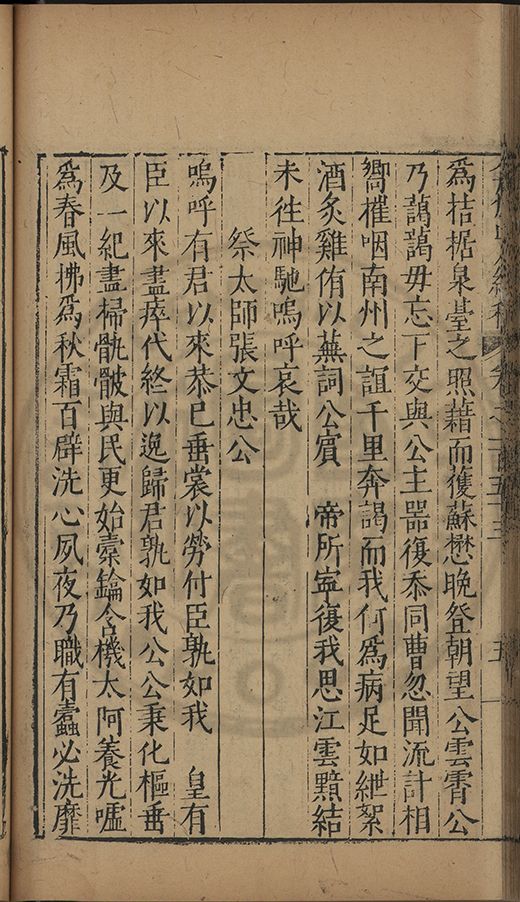 為桔椐臬臺之照藉而蒦蘇懋晚登朝望公雲霄公
乃藹藹毋忘下交與公主器復忝同曹忽聞流訃相
嚮摧咽南州之誼千里奔謁而我何為病足如紲絮
酒炙雞侑以蕪詞公賓　帝所寧復我思江雲黯結
未徃神馳嗚呼哀哉
祭太師張文忠公
嗚呼有君以來恭已垂裳以勞付臣孰如我　皇有
臣以來盡瘁代終以逸歸君孰如我公公秉化樞垂
及一紀盡掃骫骳與民更始橐鑰含機太阿養光噓
為春風拂為秋霜百辟洗心夙夜乃職有蠹必洗靡
卷之一百五十三
五